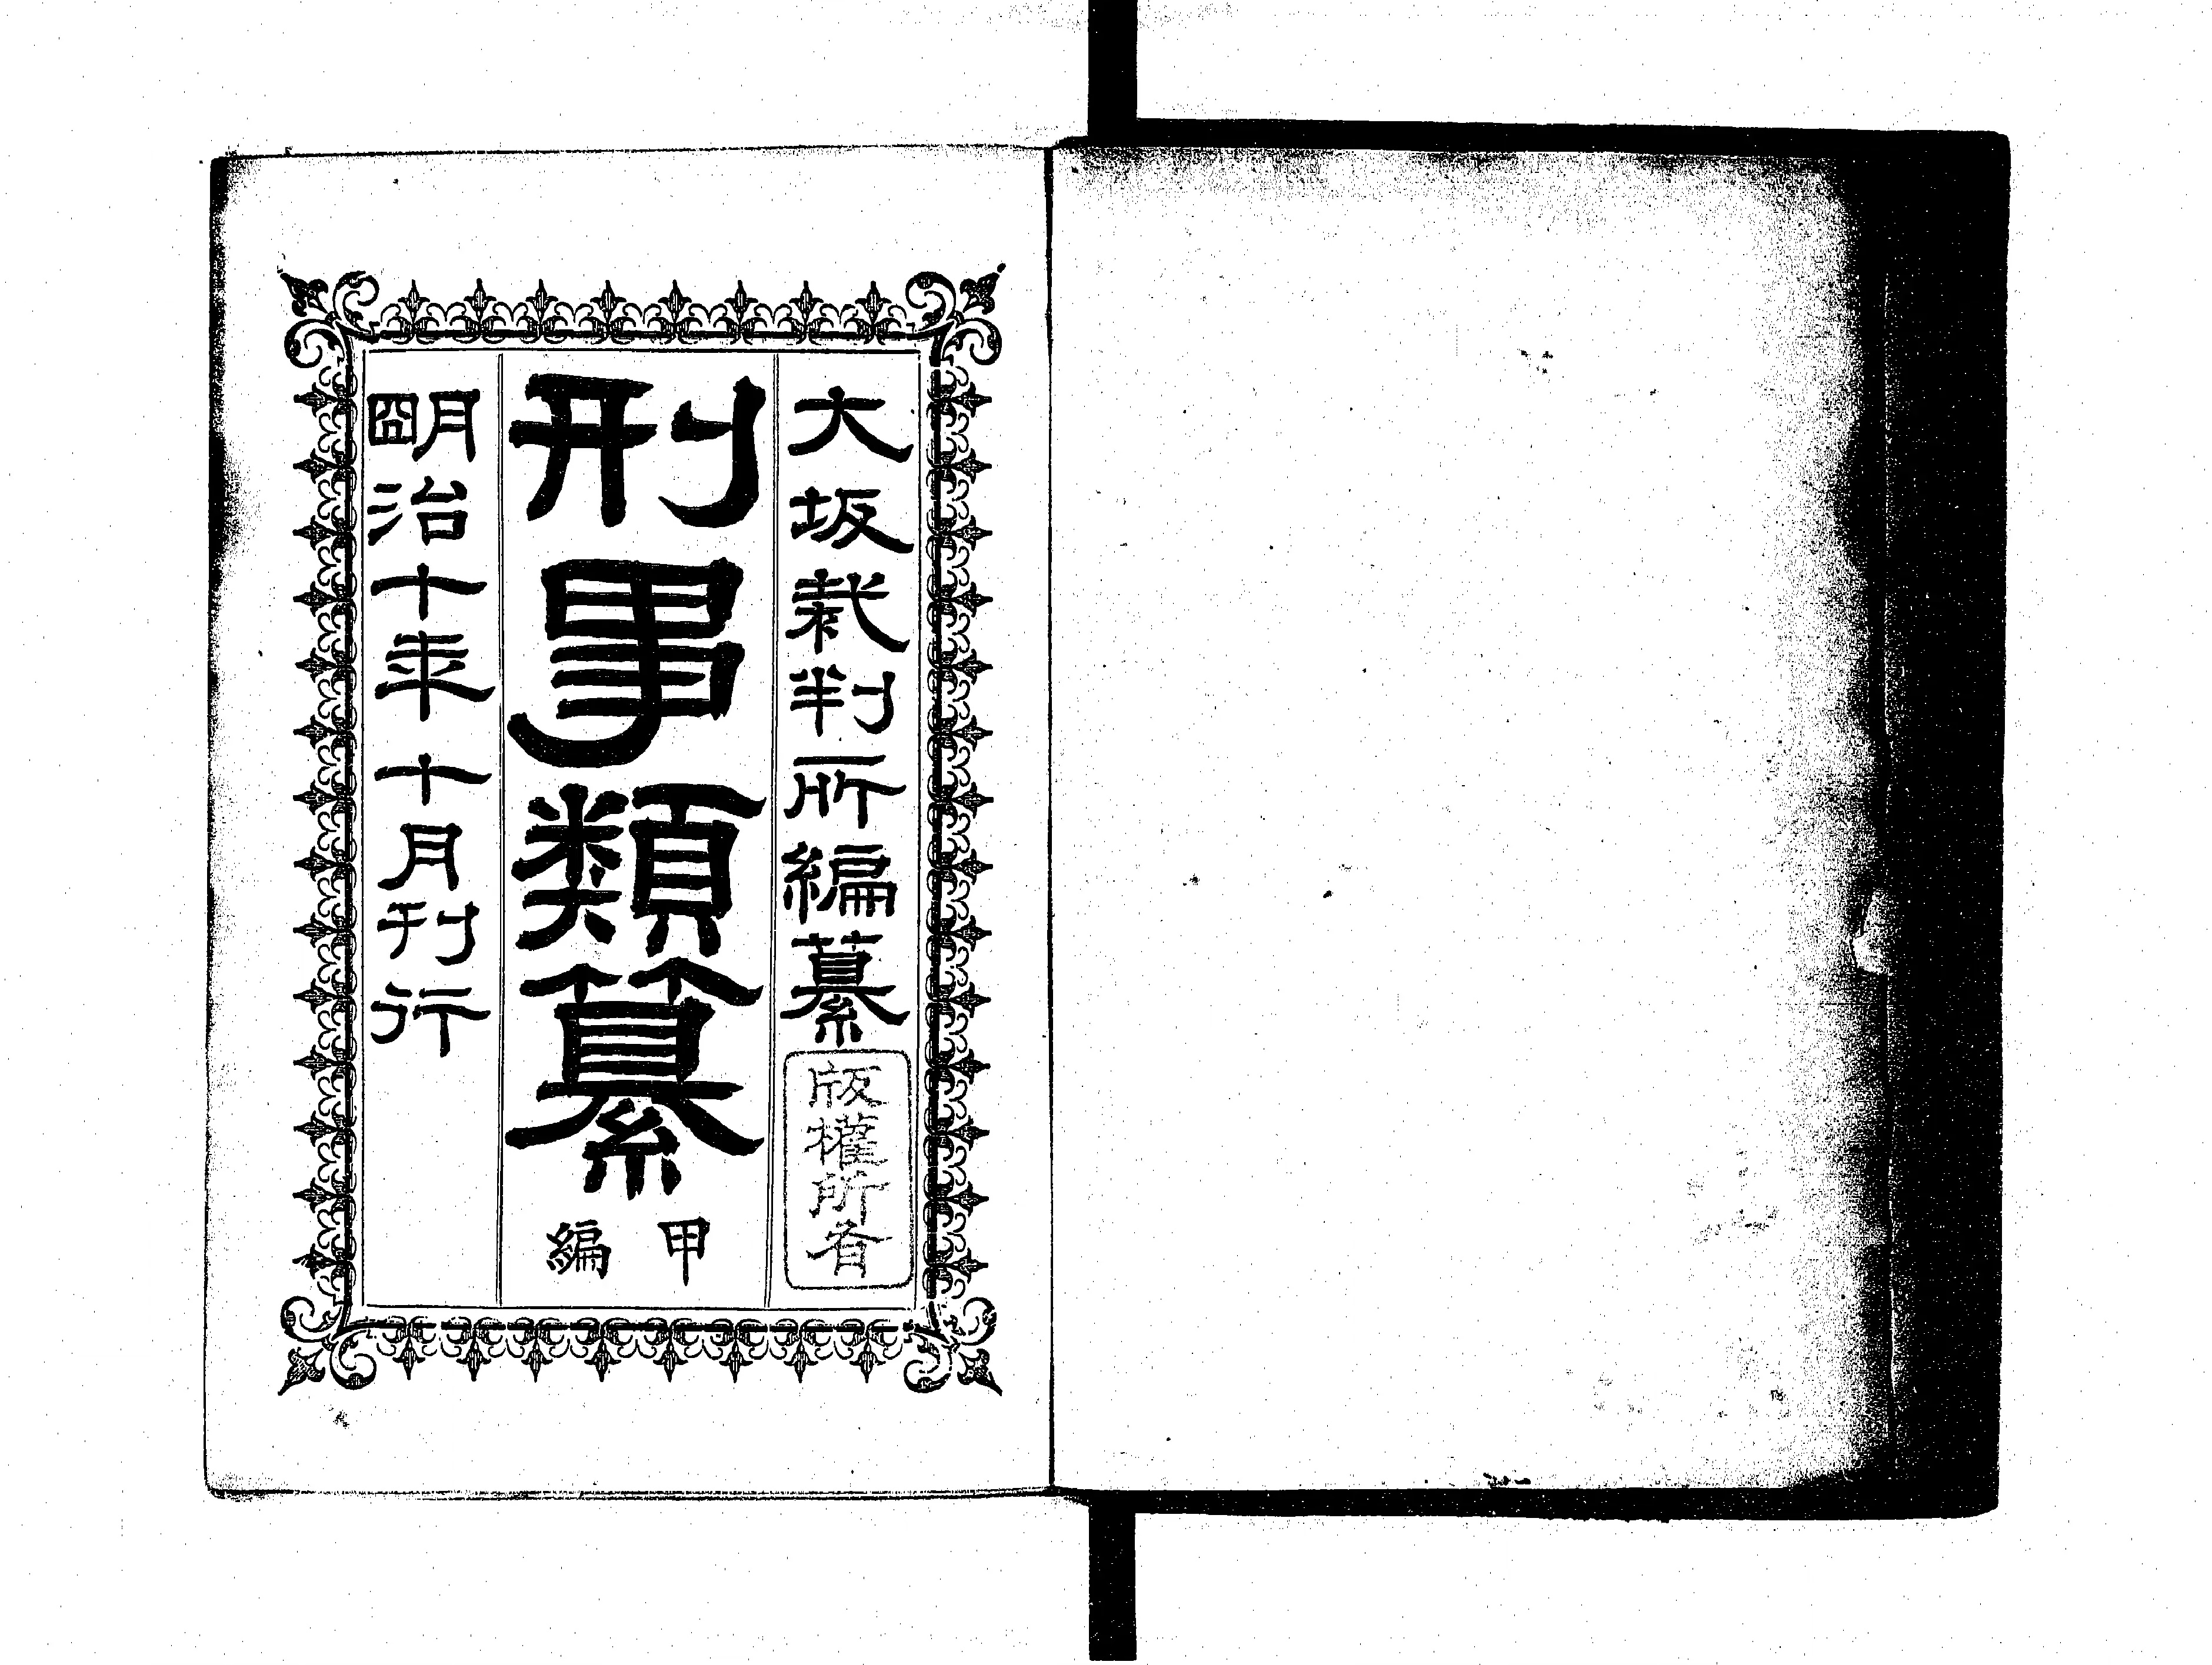 大坂裁判所編纂
版權所有
刑事類纂
甲編
明治十年十月刊行